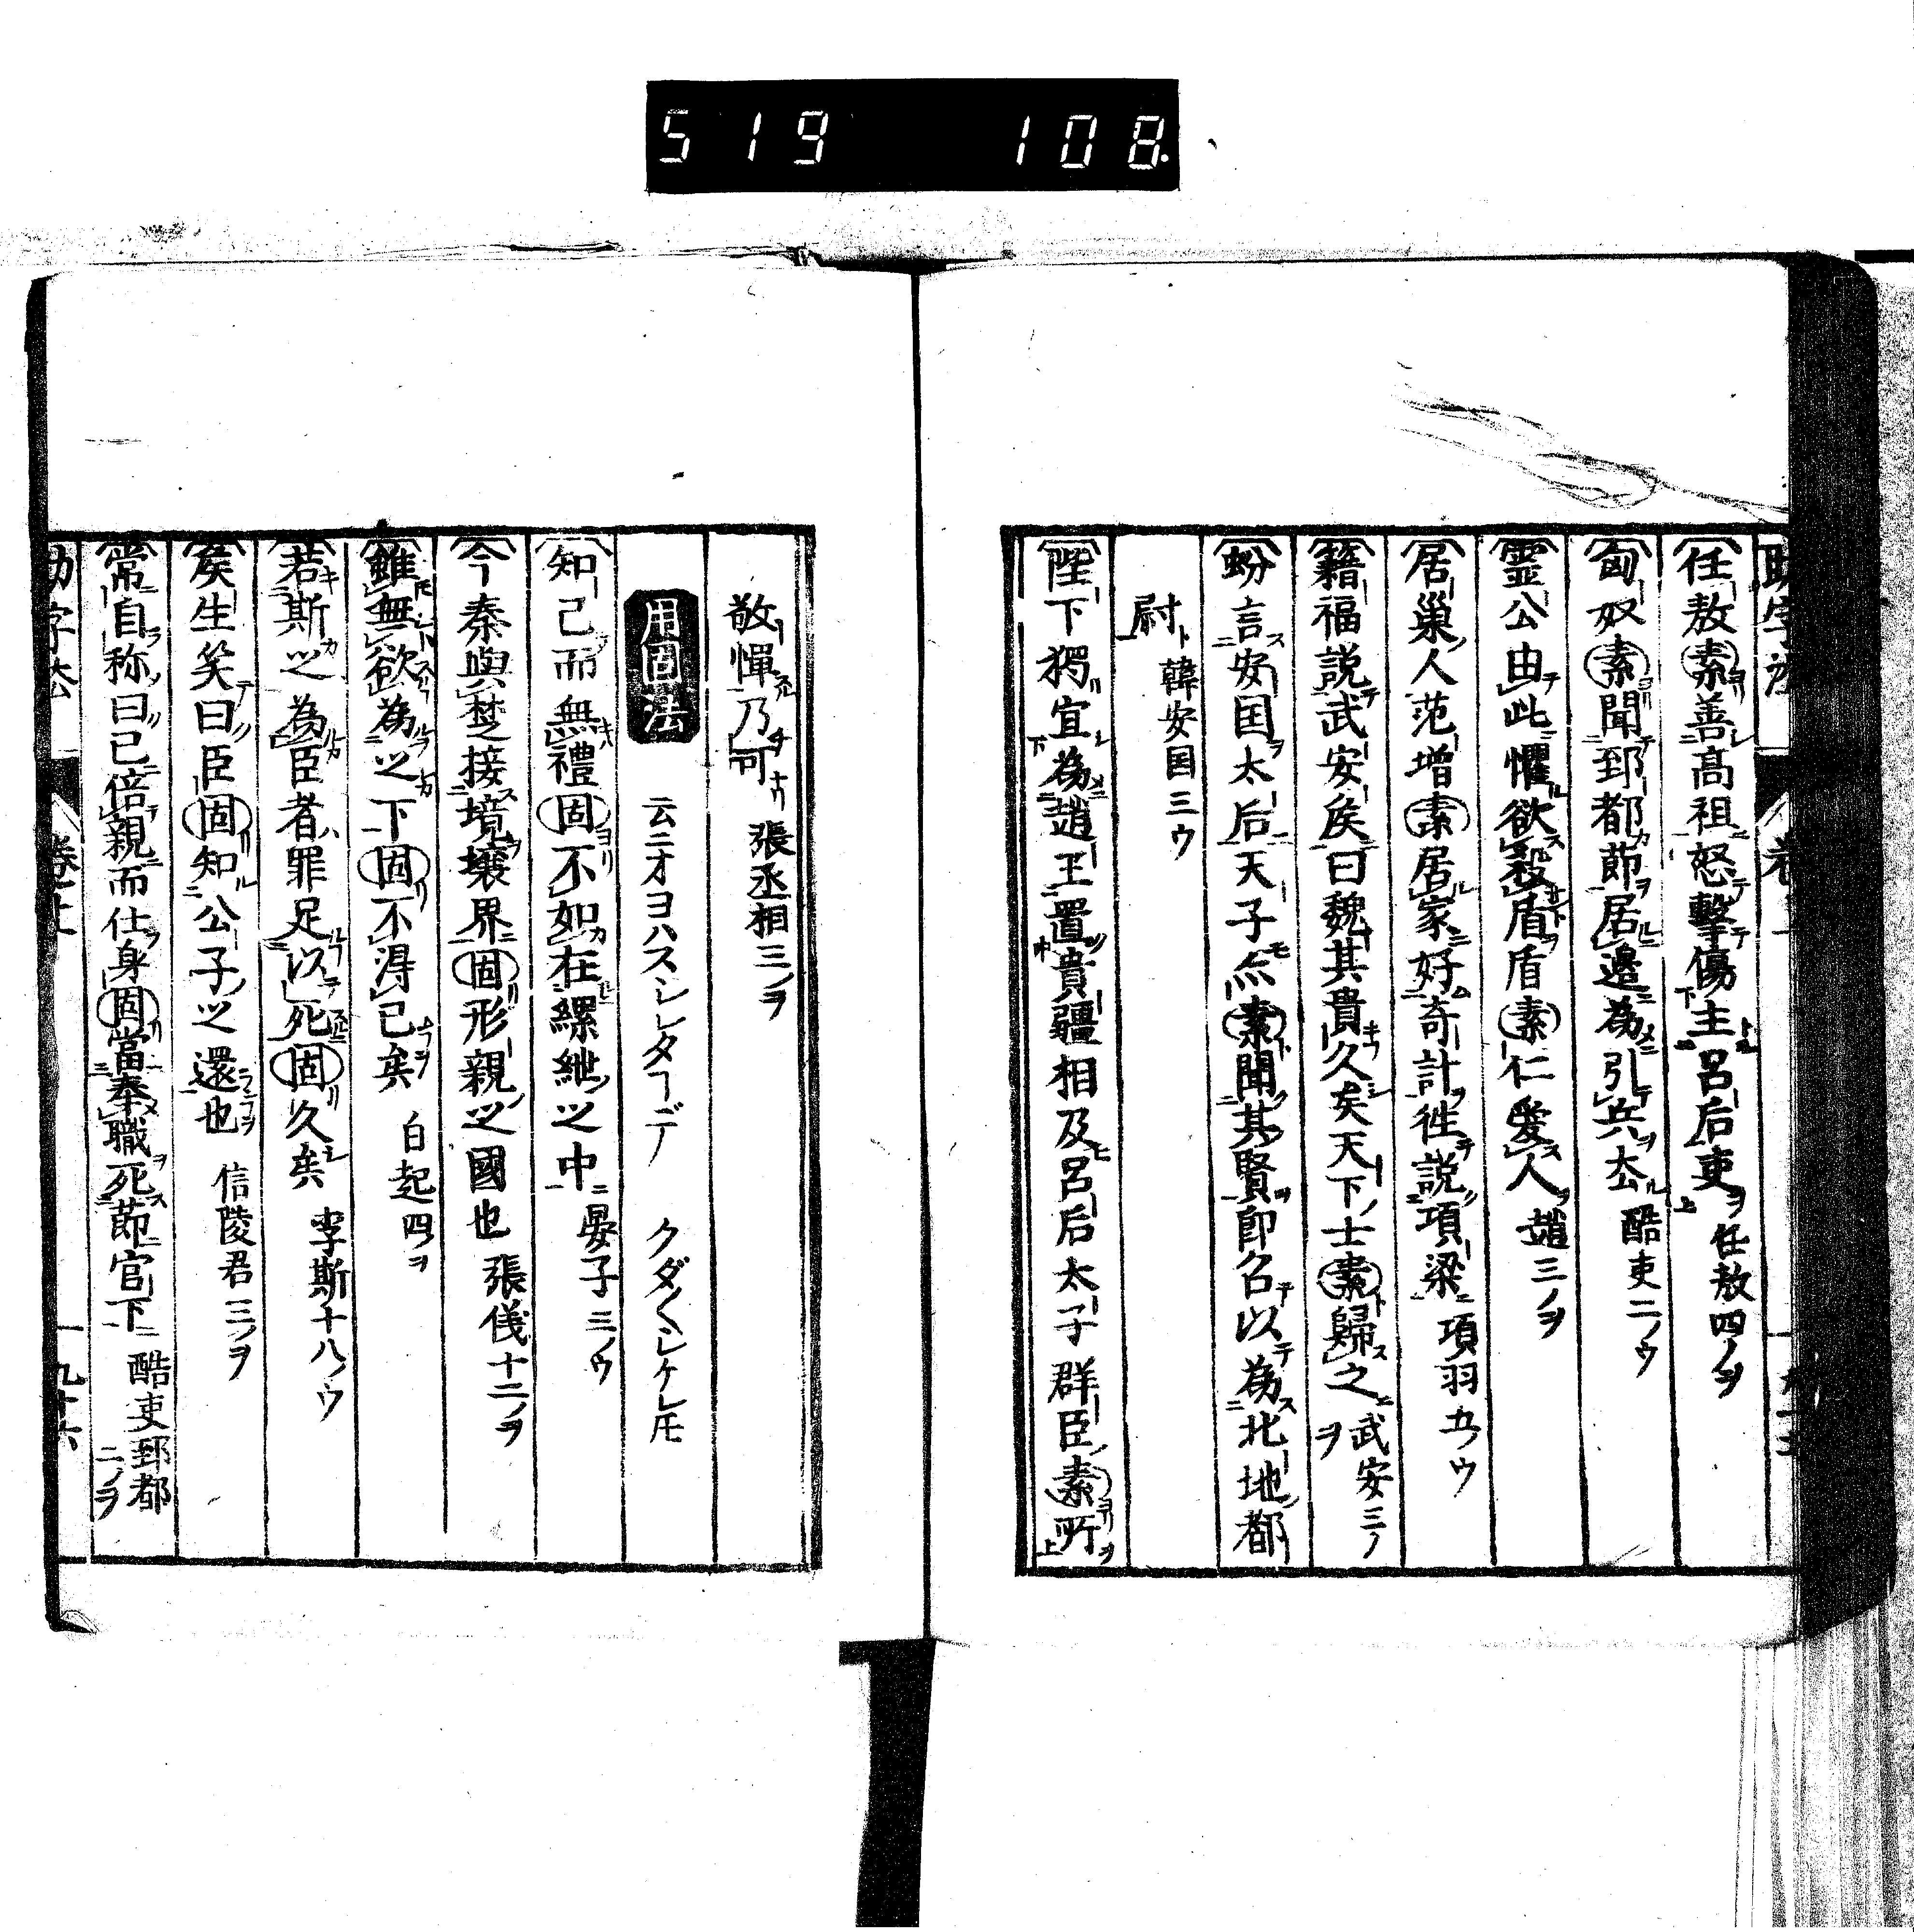 519 108
任敖素善高祖怒擊傷主呂后吏 任敖四ノヲ
匈奴素聞郅都節居邉為引兵去 酷吏二ノウ
霊公由此懼欲殺盾盾素仁愛人 趙三ノヲ
居巢人范増素居家好奇計徃説項梁 項羽五ノウ
籍福説武安矦曰魏其貴久矣天下士素歸之 武安三ノヲ
蚡言安国太后天子亦素聞其賢即召以為北地都
尉 韓安国三ウ
陛下獨宜為趙王置貴疆相及呂后太子群臣素所
敬憚乃可 張丞相三ノヲ
用固法 云ニオヨハスシレタヿデ クダ〱シケレ𪜈
知己而無禮固不如在縲紲之中 晏子三ノウ
今秦與楚接境壤界固形親之國也 張儀十二ノヲ
雖無欲為之下固不得已矣 白起四ヲ
若斯之為臣者罪足以死固久矣 李斯十八ノウ
矦生笑曰臣固知公子之還也 信陵君三ノヲ
常自称曰已倍親而仕身固當奉職死節官下 酷吏郅都二ノヲ
助字法 卷上 一九十六